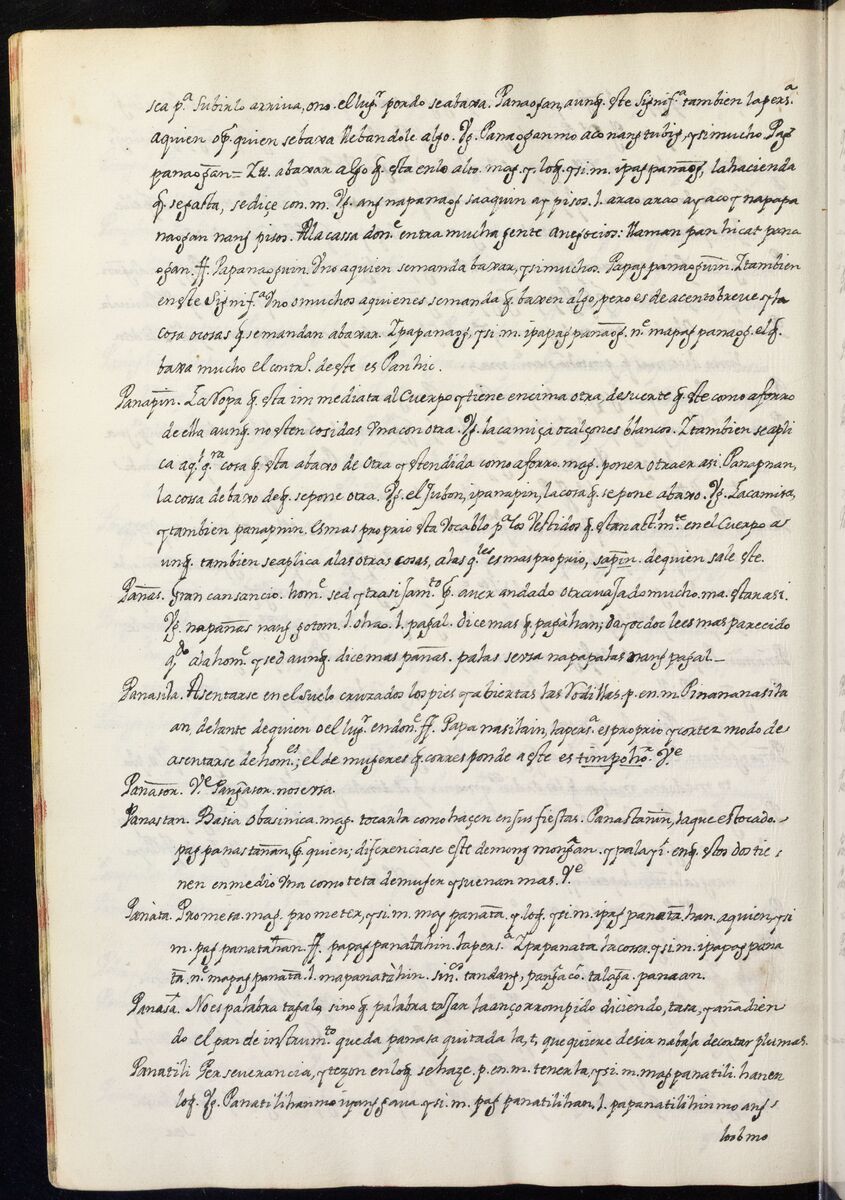 sea p.ª subirlo arriva, ono. el lug.r pordo seabaxa. Panaogan, aunq̃. este signif.ª tambien la pers.ª
aquien o q̃ quien sebaxa llebandole algo. Vg. Panaoganmo aco nang tubig, ysimucho Pag
panaogan= It. abaxar algo q̃ esta enlo alto. mag. y loq̃. ysi.m. ipagpanaog, la hacienda
q̃ segasta, sediçe con. m. Vg. ang napanaog sa aquin ay pisos. l. arao arao ay aco y napapa
naogan nang pisos. Ala cassa don.e entra mucha gente anegocios: llaman pan hic at pana
ogan. ff. Papanaoguin. Vno aquien semanda baxar, ysi muchos. Papagpanaoguin. I tambien
en este signif.ª Vno o muchos aquienes semanda q̃. baxen algo, pero es de acento breve y la
cosa ocosas q̃ semandan abaxar. Ipapanaog, ysi.m. ipapagpanaog. n.e mapagpanaog. el q̃.
baxa mucho el contr.l deste es Panhic.
Panapin. La Ropa q̃ esta immediata al Cuerpo y tiene encima otra, desuerte q̃ este como aforro
de ella aunq̃. no esten cosidas Vna con otra. Vg. la camiça o calçones blancos. I tambien se apli
ca aq.l q.ra cosa q̃ esta abaxo de otra y estendida como aforro. mag. poner otraer asi. Panapnan,
la cossa debaxo deq̃ sepone otra. Vg. el Jubon, ipanapin, la cosa q̃ se pone abaxo. Vg. La camisa,
y tambien panapnin. Es mas proprio esta Vocablo p.ª los Vestidos q̃ estan act.l m.te en el Cuerpo a
unq̃. tambien se aplica alas otras cosas, alas q.les es mas proprio, sapin. de quien sale este.
Pañas. Gran cansancio. hom.e sed y trasijam.to q̃. aver andado o travajado mucho. ma. estar asi.
Vg. napañas nang gotom. l. ohao. l. pagal. dice mas q̃ pagàhan; dayocdoc lees mas parecido
q.do ala hom.e y sed aunq̃. dice mas pañas. palas serra napapalas nang pagal_
Panasila. Asentarse en el suelo cruzados los pies y abiertas las Rodillas. p. en. m. Pinananasila
an, delante de quien o el lug.r en don.e ff. Papanasilain, la pers.ª es proprio y cortez modo de
asentarse de hom.es; el de mugeres q̃ corresponde a este es timpoho.ª V.e
Pañason. V.e Pangason. no serra.
Panastan. Basia obasinica. mag. tocarla como haçen en sus fiestas. Panastanin, la que es tocado.
pagpanastanan, q̃ quien; diferenciase este demong mongan. y palayi. enq̃. estos dos tie
nen en medio Vna como teta de muger y suenan mas. V.e
Panàta. Promesa. mag. prometer, ysi.m. mag panata. y loq̃. ysi.m. ipagpanata. han. aquien, ysi
m. pag panatahan. ff. papagpanatahin la pers.ª Ipapanata la cossa. ysi.m. ipapagpana
ta. n.e mapagpanata. l. mapanatàhin. sin.os tandang, pangaco. talaga. panaan.
Panasa. No es palabra tagala sino q̃ palabra tajar la an çorrompido diciendo, tasa, y añadien
do el pan de instrum.to queda panasa quitada la, t, que quiere desir nabaja de cortar plumas.
Panatili Perseverancia, y tezon en loq̃ se haze. p. en. m. tenerla, ysi.m. mag panatili. han en
loq̃. Vg. Panatilihan mo iyang gaua. ysi.m. pag panatilihan. l. papanatilihin mo ang
loob mo